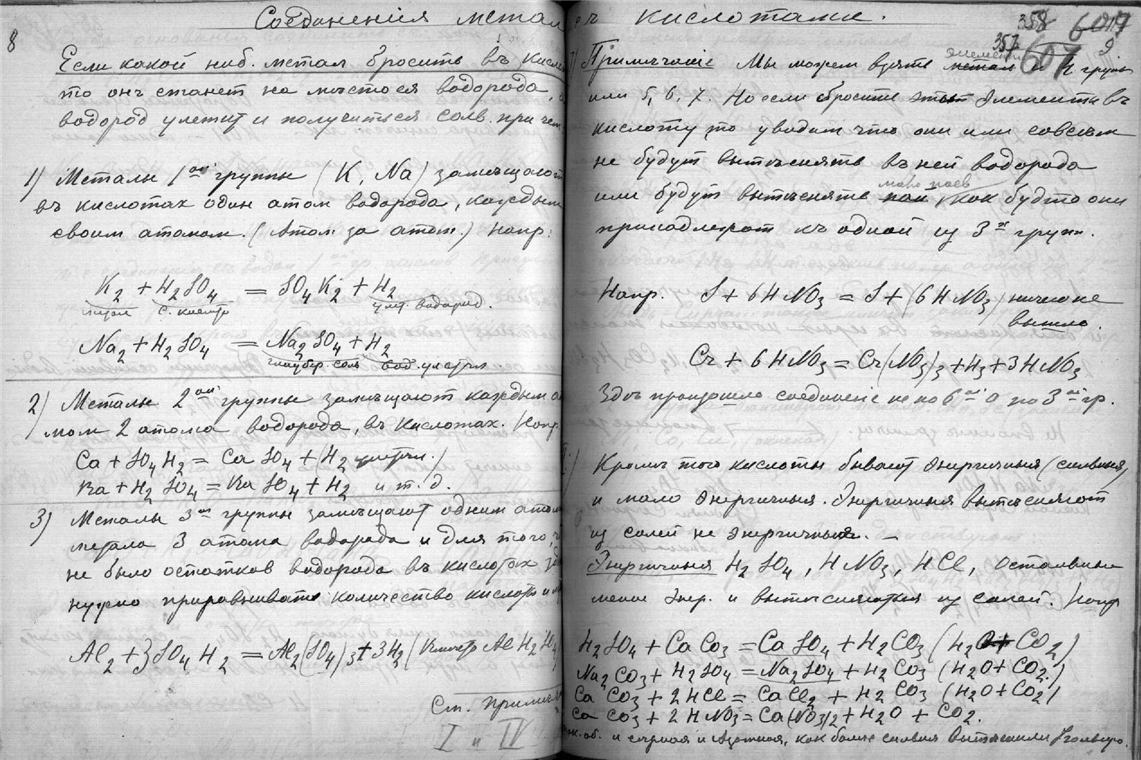 8
Соединенiя метал
Если какой ниб. метал бросить въ кисло
то онъ станет на мѣсто ея водорода,
водород улетит и получиться соль, при чем
1) Металы 1ой группы (K, Na) замѣщают
въ кислотах один атом водорода, каждым
своим атомом. (Атом за атом.) Напр:
K2 + H2SO4 = SO4K2 + H2
метал с. кислота улет. водород.
Na2 + H2SO4 = Na2SO4 + H2
глаубер. соль вод. улетил
2) Металы 2ой группы замѣщают каждым а
томом 2 атома водорода, въ кислотах. Напр.
Ca + SO4H2 = CaSO4 + H2 улетѣл.)
Ba + H2SO4 = BaSO4 + H2 и т. д.
3) Металы 3ей группы замѣщают одним атом
метала 3 атома водорода и для того ч
не было остатков водорода въ кислотах
нужно приравнивать количество кислоты и
Al2 + 3SO4H2 = Al2(SO4)3 + 3H2 (
См. примѣч
I и IV
въ кислотами.
358 6017
357 607 9
Примѣчанiе Мы можем взять элемент метал и 4 групы
или 5, 6, 7. Но если бросить этот элементъ въ
кислоту то увидим что они или совсем
не будут вытѣснять въ ней водорода
или будут вытѣснять мало паев, как будто они
принадлежат къ одной из 3х групп.
Напр. S + 6HNO3 = S + (6HNO3) ничего не
вышло.
Cr + 6HNO3 = Cr(NO3)3 + H3 + 3HNO3
Здѣсь произошло соединенiе не по 6ой а по 3ей гр.
Кромѣ того кислоты бывают энергичныя (сильныя)
и мало энергичныя. Энергичныя вытѣсняют
из солей не энергичные. —
Энергичныя H2SO4, HNO3, HCl, остальныя
менѣе энер. и вытѣсняются из солей. Напр
H2SO4 + CaCO3 = CaSO4 + H2CO3 (H2O + CO2)
Na2CO3 + H2SO4 = Na2SO4 + H2CO3 (H2O + CO2.)
CaCO3 + 2HCl = CaCl2 + H2CO3 (H2O + CO2)
CaCO3 + 2HNO3 = Ca(NO3)2 + H2O + CO2.
об. и сѣрная и азотная, как болѣе сильныя вытѣснили